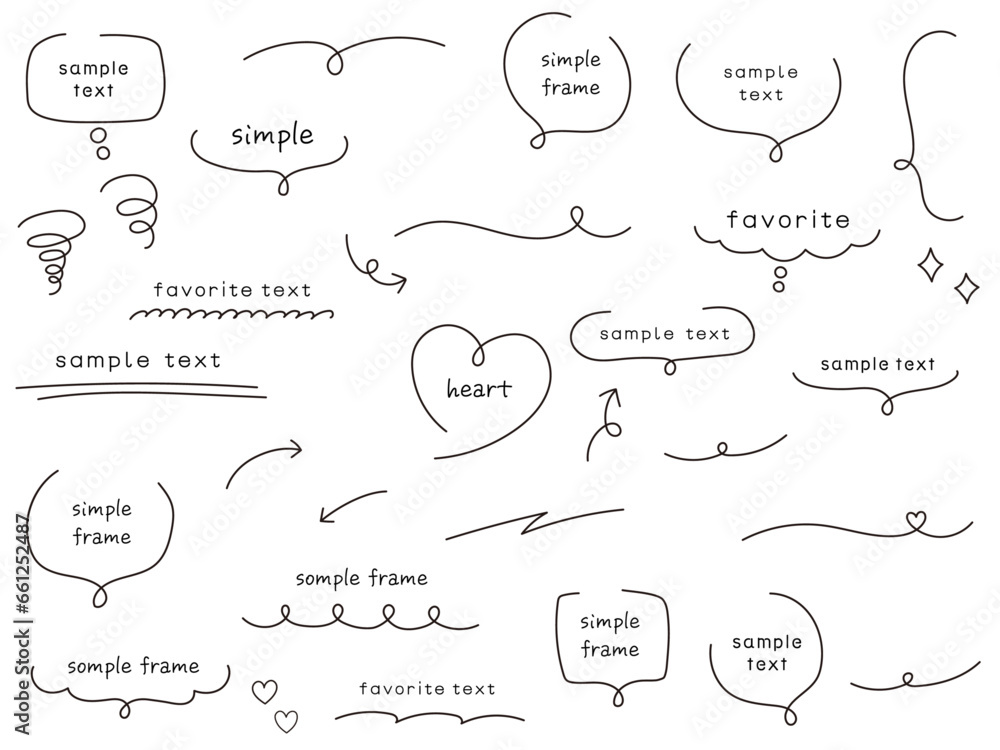 sample
text
simple
simple
frame
sample
text
favorite
favorite text
sample text
heart
sample text
sample text
simple
frame
somple frame
somple frame
favorite text
simple
frame
sample
text
Adobe Stock | #661252487